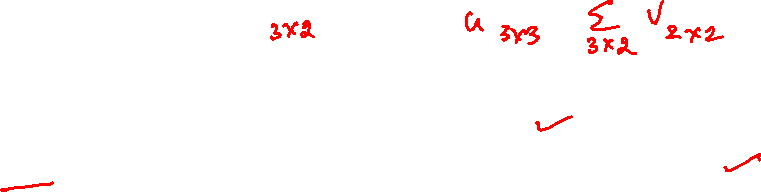 3x2 u 3x3 Σ 3x2 V 2x2